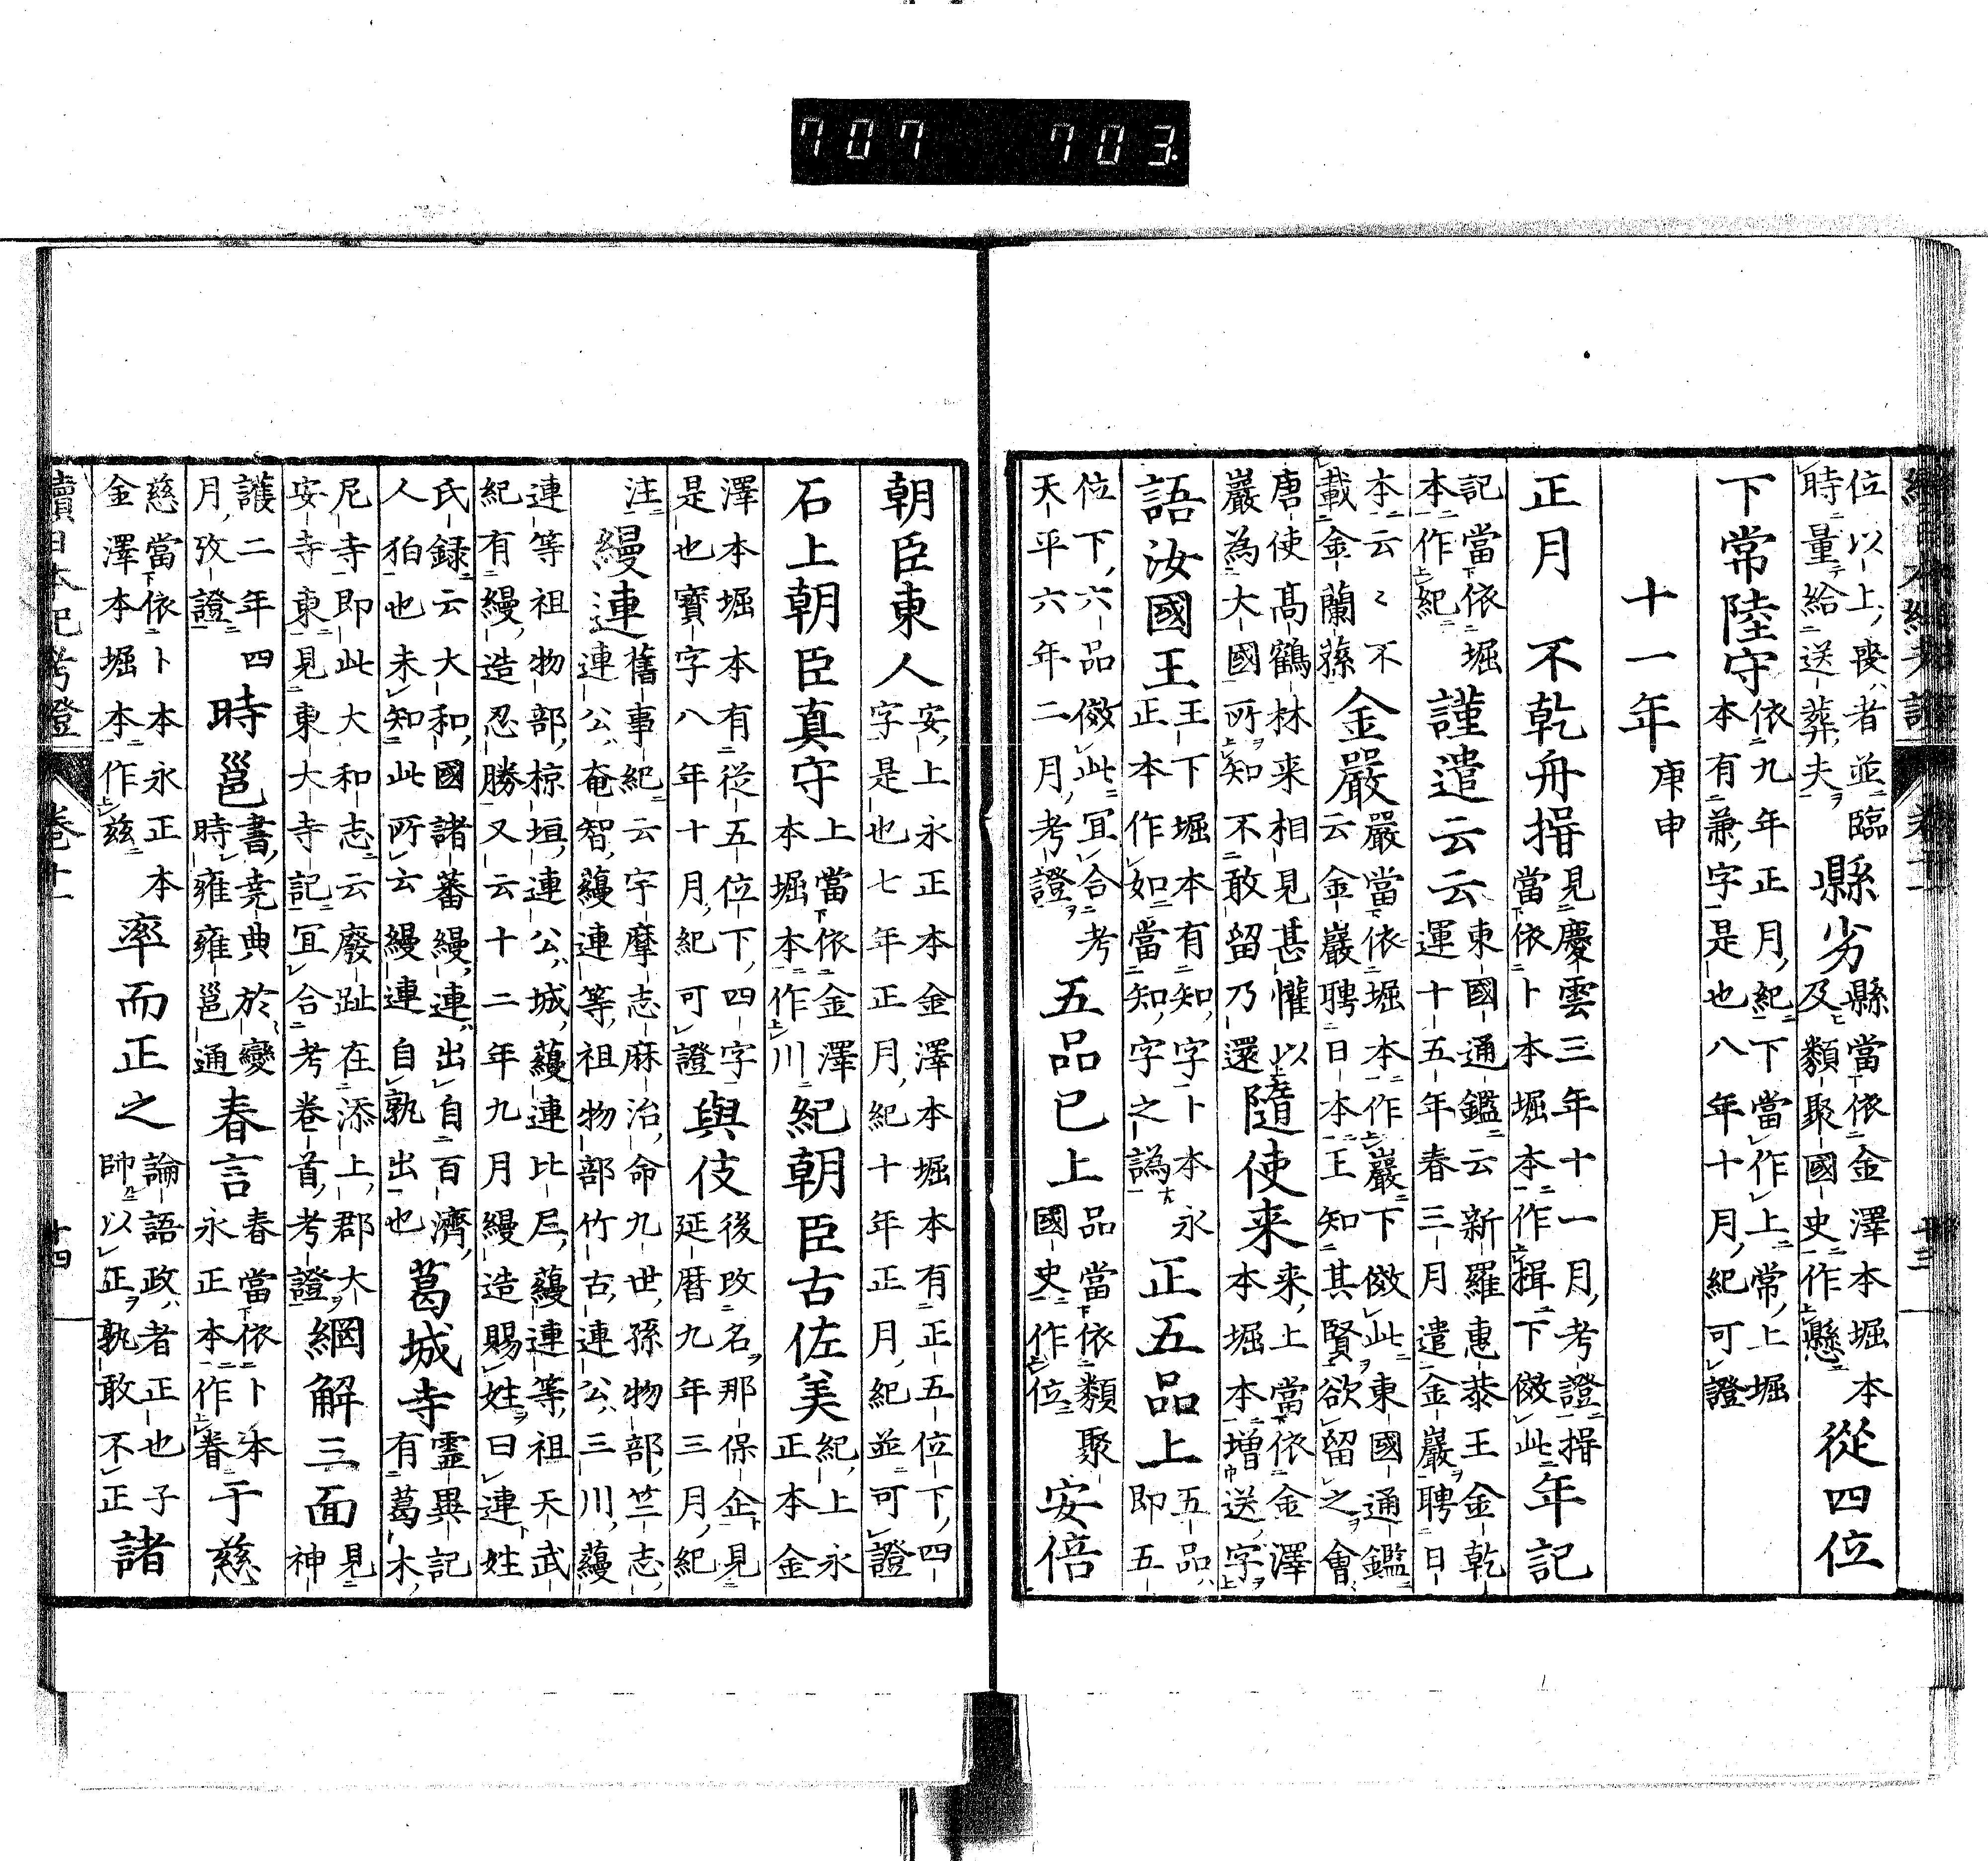 707 703.
位以上喪者並臨
時量給送葬夫
縣劣
縣當依金澤本堀本
及類聚國史作懸
從四位
下常陸守
依九年正月紀下當作上常上堀
本有兼字是也八年十月紀可證
十一年
庚申
正月
不乾舟揖
見慶雲三年十一月考證揖
當依卜本堀本作楫下倣此
年記
記當依堀
本作紀
謹遣云云
東國通鑑云新羅惠恭王金乾
運十五年春三月遣金巖聘日
本云云不
載金蘭蓀
金嚴
嚴當依堀本作巖下倣此東國通鑑
云金巖聘日本王知其賢欲留之會
唐使高鶴林来相見甚懽以
巖為大國所知不敢留乃還
隨使来
来上當依金澤
本堀本增送字
語汝國王
王下堀本有知字卜本永
正本作如當知字之譌
正五品上
五品
即五
位下六品倣此宜合考
天平六年二月考證
五品已上
品當依類聚
國史作位
安倍
朝臣東人
安上永正本金澤本堀本有正五位下四
字是也七年正月紀十年正月紀並可證
石上朝臣真守
上當依金澤
本堀本作川
紀朝臣古佐美
紀上永
正本金
澤本堀本有從五位下四字
是也寶字八年十月紀可證
與伎
後改名那保企見
延曆九年三月紀
注
縵連
舊事紀云宇摩志麻治命九世孫物部竺志
連公奄智蘰連等祖物部竹古連公三川蘰
連等祖物部椋垣連公城蘰連比尼蘰連等祖天武
紀有縵造忍勝又云十二年九月縵造賜姓曰連姓
氏録云大和國諸蕃縵連出自百濟
人狛也未知此所云縵連自孰出也
葛城寺
靈異記
有葛木
尼寺即此大和志云廢趾在添上郡大
安寺東見東大寺記宜合考卷首考證
網解三面
見
神
護二年四
月攷證
時邕
書堯典於變
時雍雍邕通
春言
春當依卜本
永正本作眷
于慈
慈當依卜本永正本
金澤本堀本作茲
率而正之
論語政者正也子
帥以正孰敢不正
諸
續日本紀考證
卷十一
十四